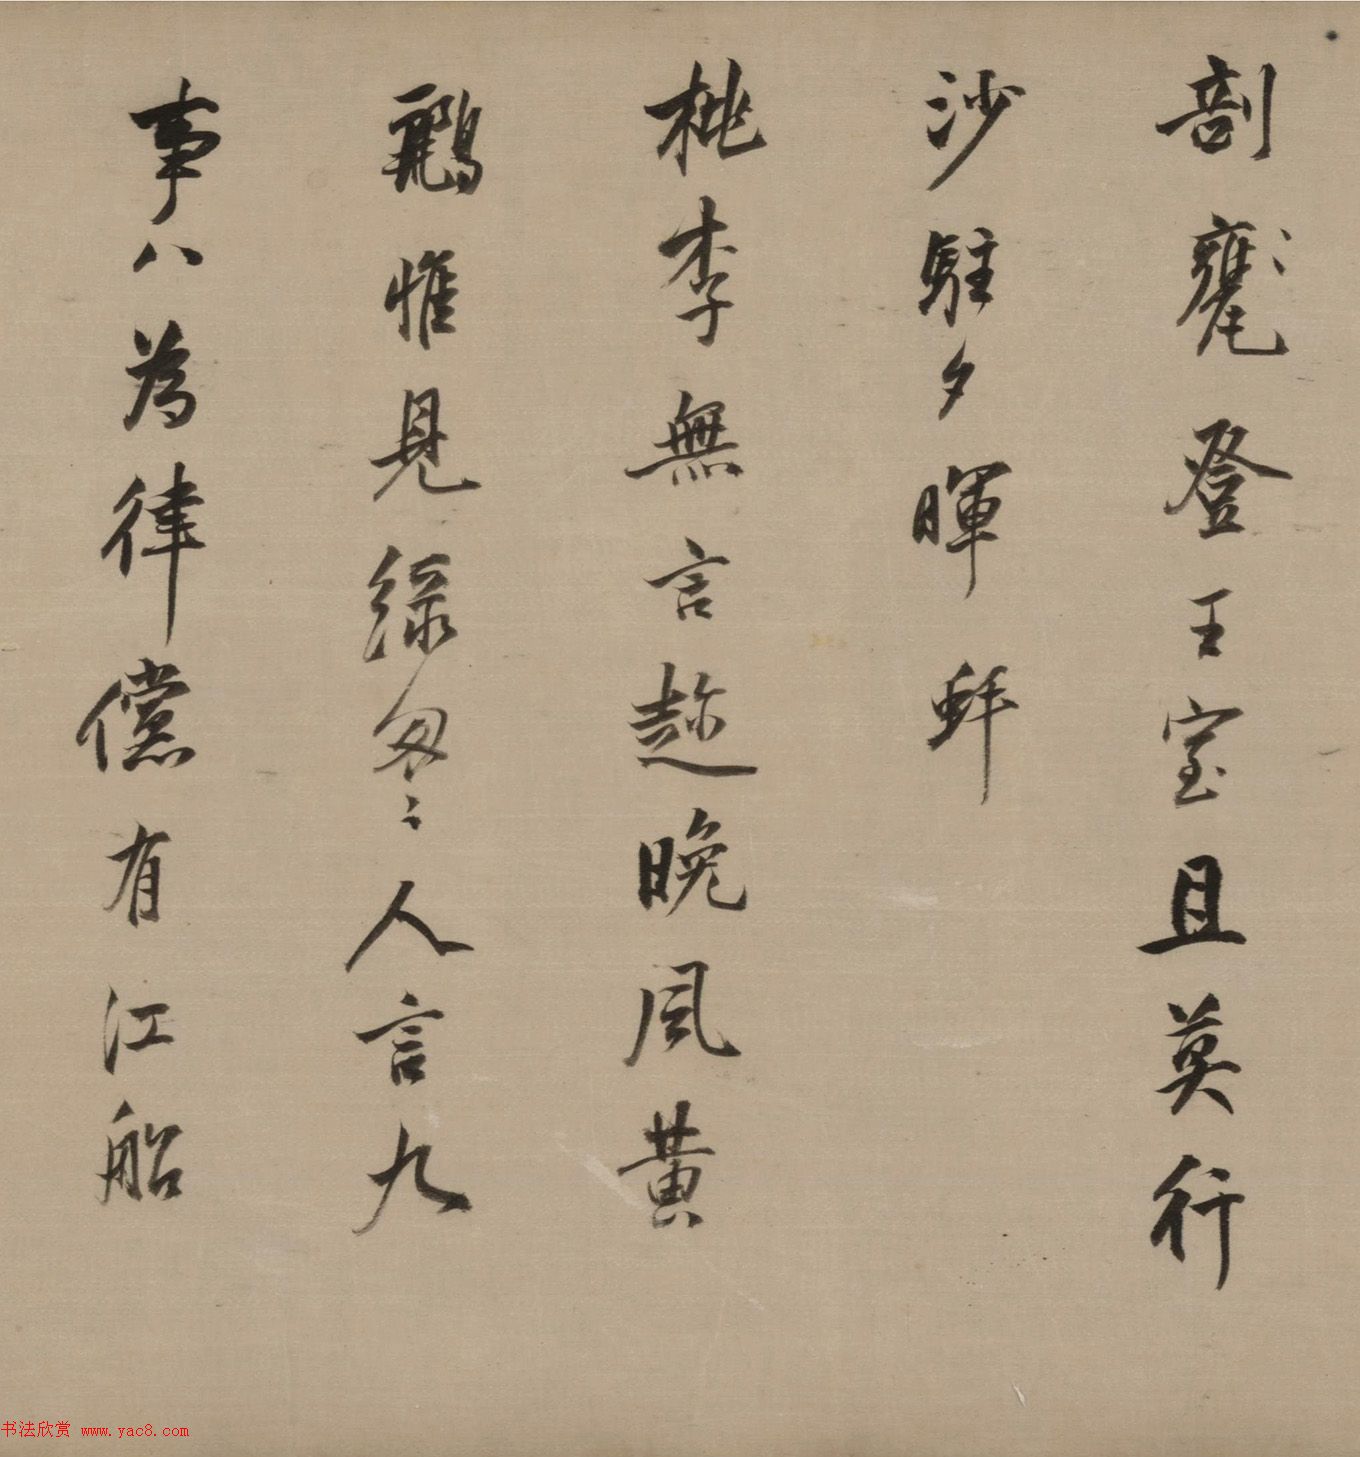 剖甕登王室且莫行
沙駐夕暉 蚌
桃李無言趂晚風黃
鸝惟見綠匆〻人言九
事八為律儻有江船
书法欣赏 www.yac8.com